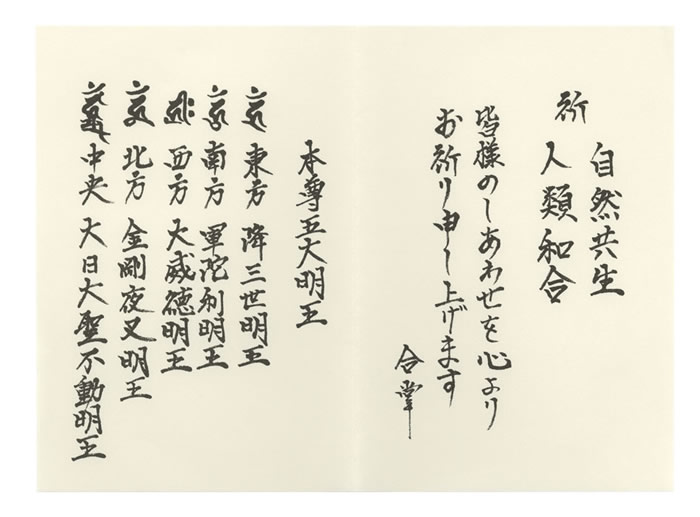 自然共生
祈 人類和合
皆様のしあわせを心より
お祈り申し上げます
合掌
本尊五大明王
東方 降三世明王
南方 軍陀利明王
西方 大威徳明王
北方 金剛夜叉明王
中央 大日大聖不動明王